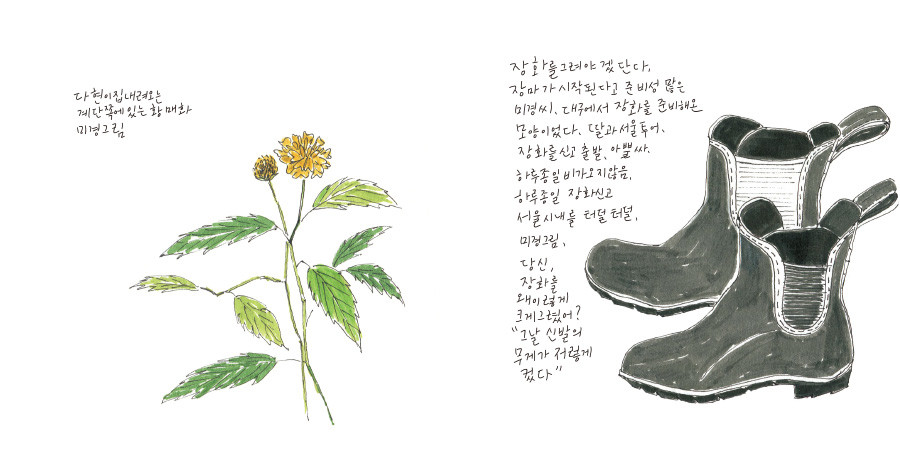 다현이집내려오는
계단쪽에있는 황매화
미경그림
장화를그려야겠단다.
장마가 시작된다고 준비성 많은
미경씨. 대구에서 장화를 준비해온
모양이었다. 딸과서울투어.
장화를신고 출발, 아뿔싸.
하루종일비가오지않음.
하루종일 장화신고
서울시내를 터덜터덜.
미경그림.
당신,
장화를
왜이렇게
크게그렸어?
"그날 신발의
무게가 저렇게
컸다"